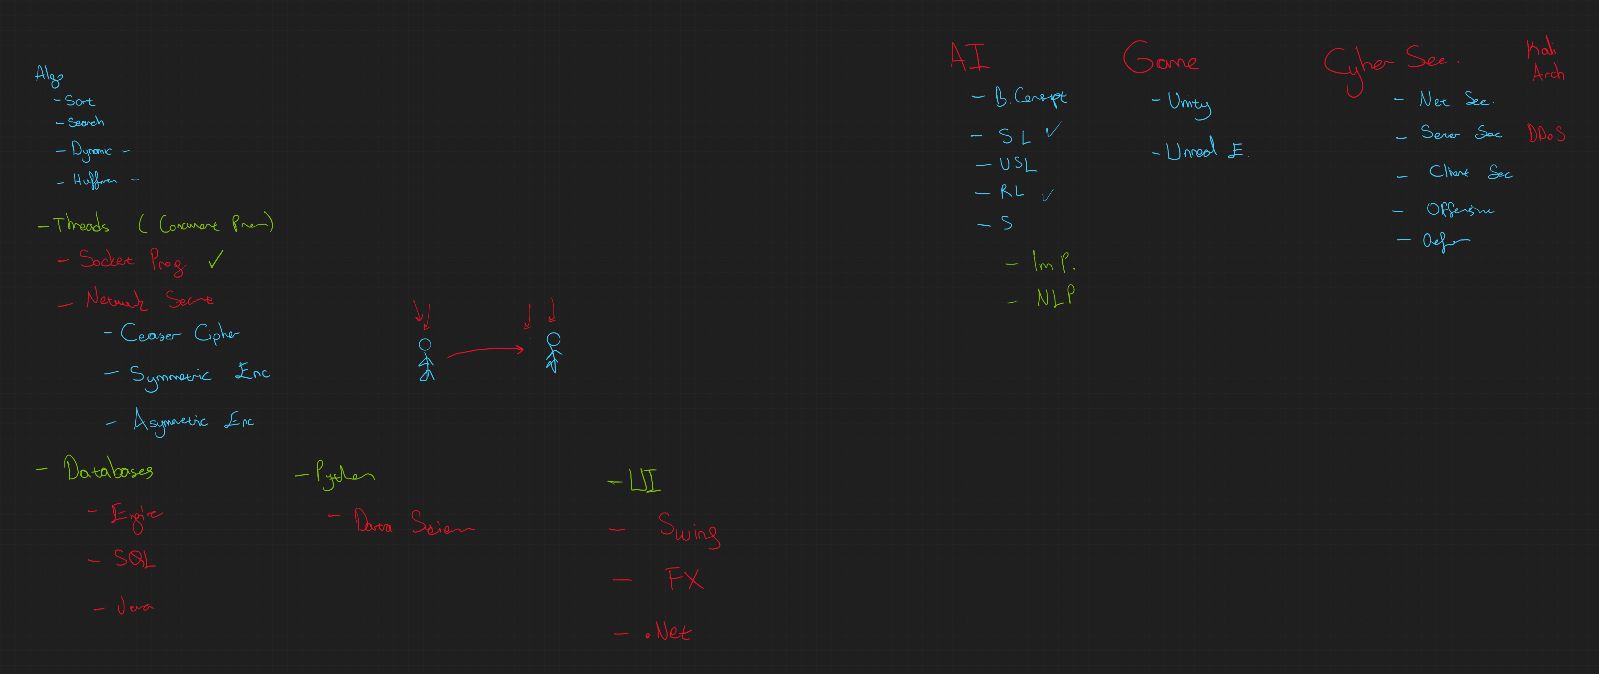 Algo
- Sort
- Search
- Dynamic -
- Huffman -
- Threads (Concurrent
- Socket Prog ✓
- Network
- Ceaser Cipher
- Symmetric Enc
- Asymmetric Enc
- Databases
- Engine
- SQL
- Java
- Python
- Data
- UI
- Swing
- FX
- .Net
AI
- B. Concept
- SL ✓
- USL
- RL ✓
- S
- Im P.
- NLP
Game
- Unity
- Unreal E.
Cyber Sec.
- Net Sec.
- Server Sec
- Client Sec
- Offensive
Kali
Arch
DDoS